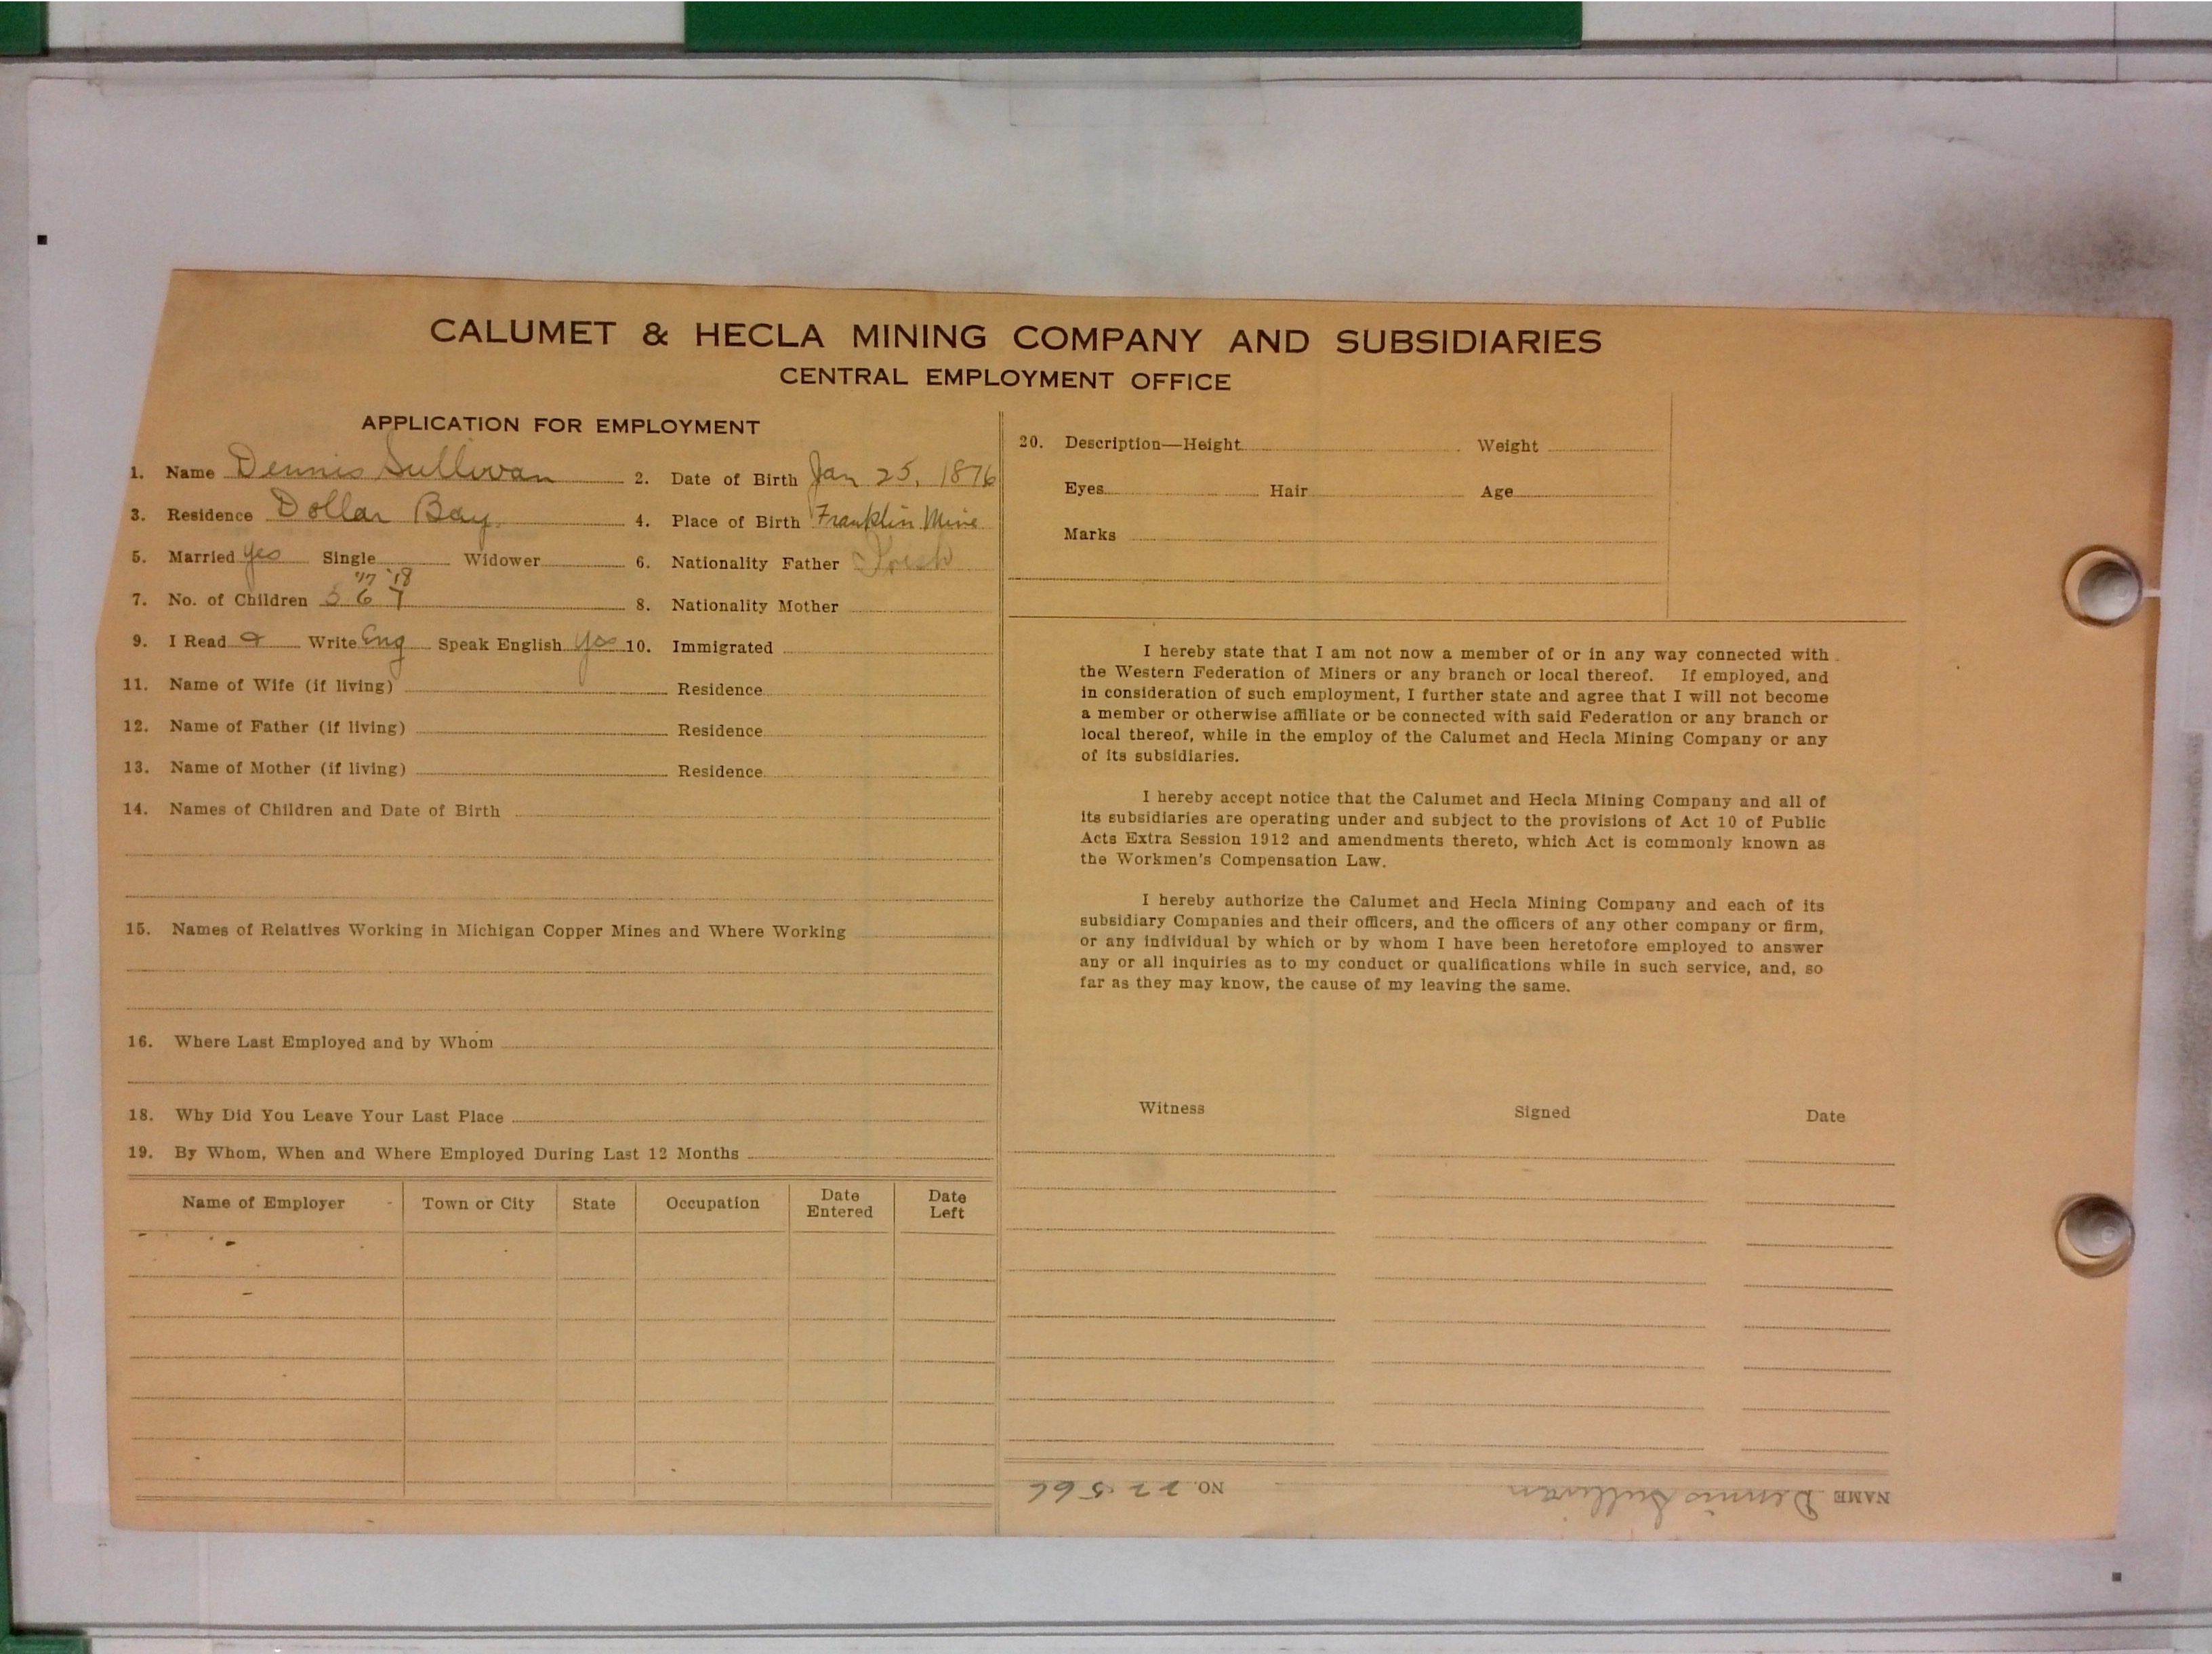 CALUMET & HECLA MINING COMPANY AND SUBSIDIARIES
CENTRAL EMPLOYMENT OFFICE
APPLICATION FOR EMPLOYMENT
1. Name Dennis Sullivan 2. Date of Birth Jan 25, 1876
3. Residence Dollar Bay 4. Place of Birth Franklin Mine
5. Married yes Single Widower 6. Nationality Father Irish
'17 '18
7. No. of Children 5 6 7 8. Nationality Mother
9. I Read & Write Eng Speak English yes 10. Immigrated
11. Name of Wife (if living) Residence
12. Name of Father (if living) Residence
13. Name of Mother (if living) Residence
14. Names of Children and Date of Birth
15. Names of Relatives Working in Michigan Copper Mines and Where Working
16. Where Last Employed and by Whom
18. Why Did You Leave Your Last Place
19. By Whom, When and Where Employed During Last 12 Months
Name of Employer Town or City State Occupation Date Entered Date Left
20. Description—Height Weight
Eyes Hair Age
Marks
I hereby state that I am not now a member of or in any way connected with
the Western Federation of Miners or any branch or local thereof. If employed, and
in consideration of such employment, I further state and agree that I will not become
a member or otherwise affiliate or be connected with said Federation or any branch or
local thereof, while in the employ of the Calumet and Hecla Mining Company or any
of its subsidiaries.
I hereby accept notice that the Calumet and Hecla Mining Company and all of
its subsidiaries are operating under and subject to the provisions of Act 10 of Public
Acts Extra Session 1912 and amendments thereto, which Act is commonly known as
the Workmen's Compensation Law.
I hereby authorize the Calumet and Hecla Mining Company and each of its
subsidiary Companies and their officers, and the officers of any other company or firm,
or any individual by which or by whom I have been heretofore employed to answer
any or all inquiries as to my conduct or qualifications while in such service, and, so
far as they may know, the cause of my leaving the same.
Witness Signed Date
NAME Dennis Sullivan NO. 22566